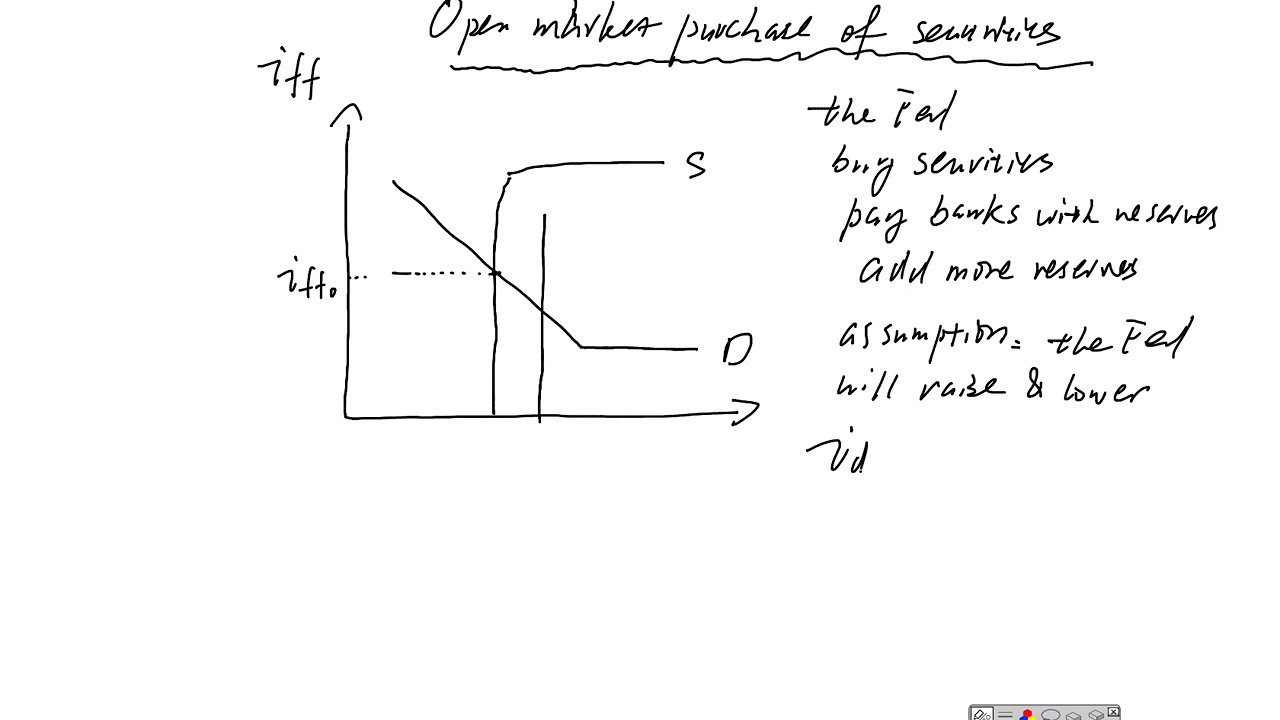 Open market purchase of securities
iff
the Fed
S
buy securities
pay banks with reserves
add more reserves
iff₀
assumption: the Fed
D
will raise & lower
id